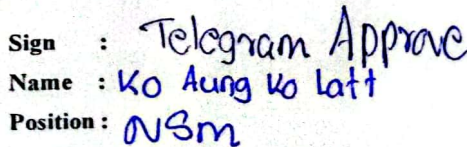 Sign : Telegram Approve
Name : Ko Aung Ko Latt
Position : NSM